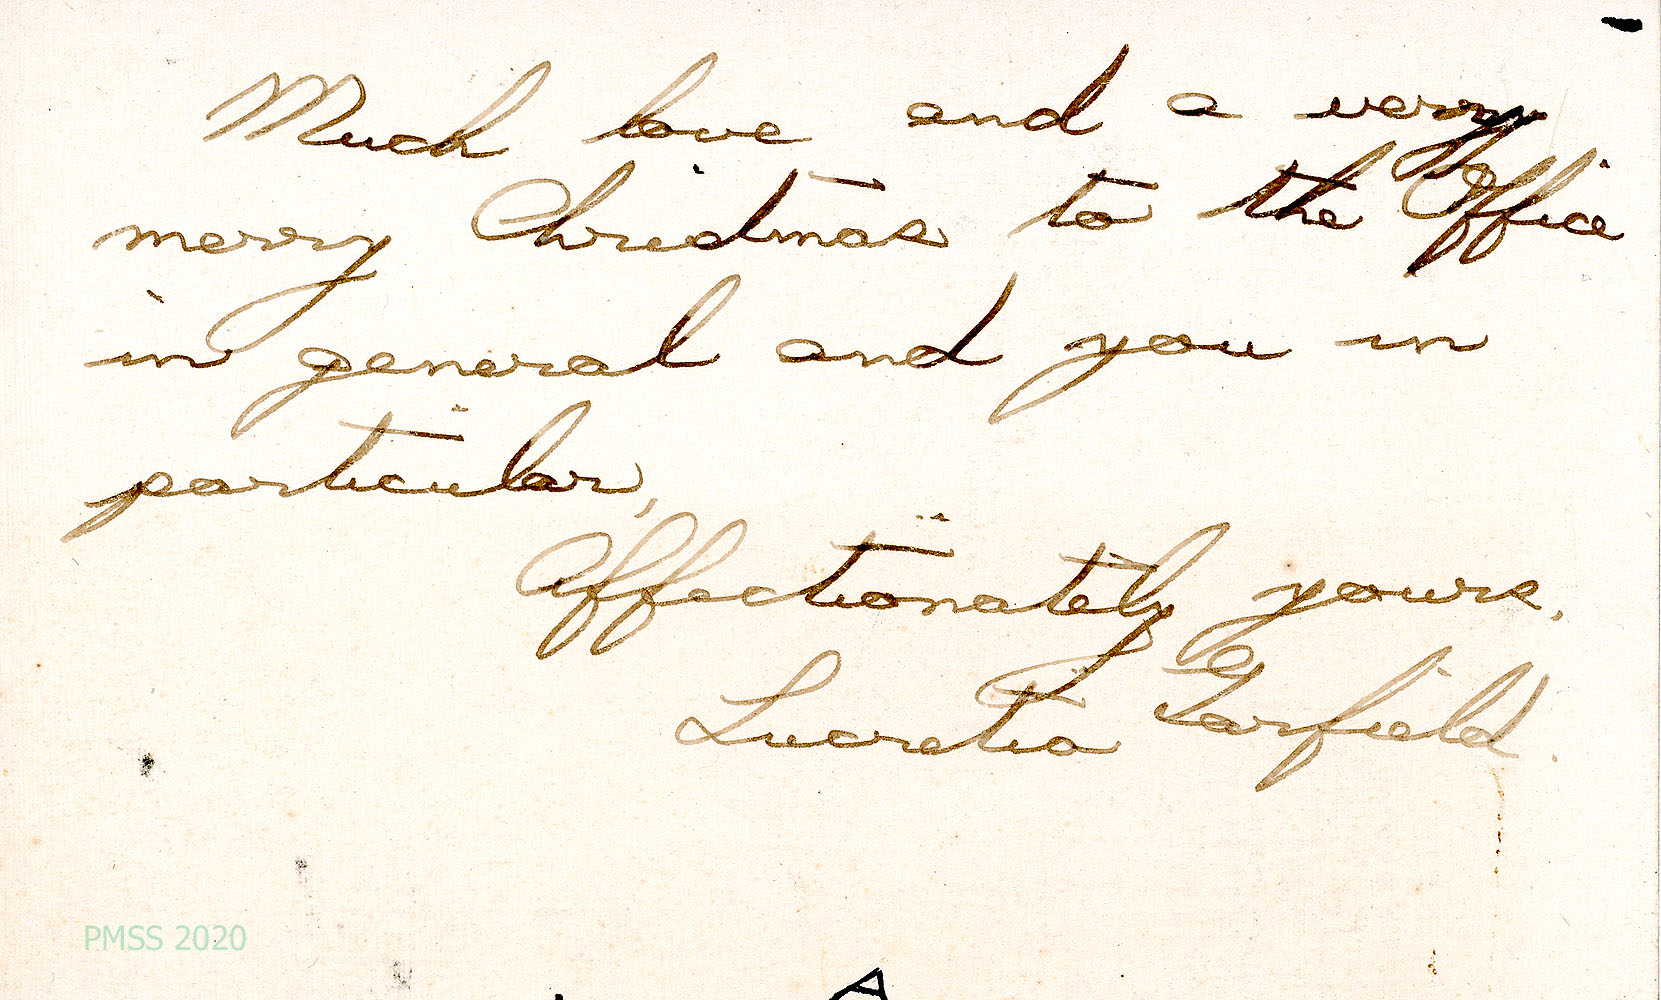 Much love and a very
merry Christmas to the Office
in general and you in
particular,
Affectionately yours,
Lucretia Garfield.
PMSS 2020
A